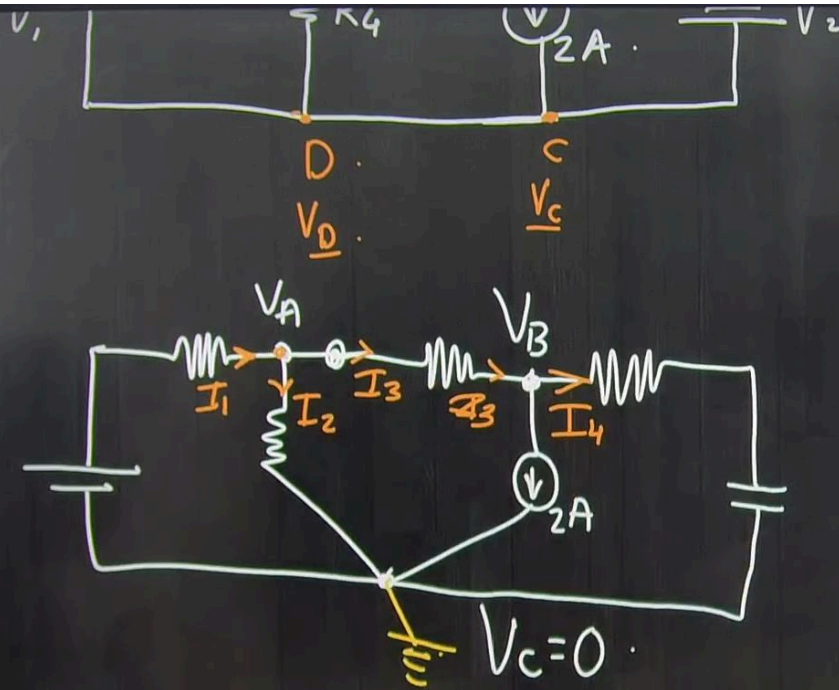 V1 R4 2A V2
D C
VD VC
VA VB
I1 I2 I3 I3 I4
2A
VC=0